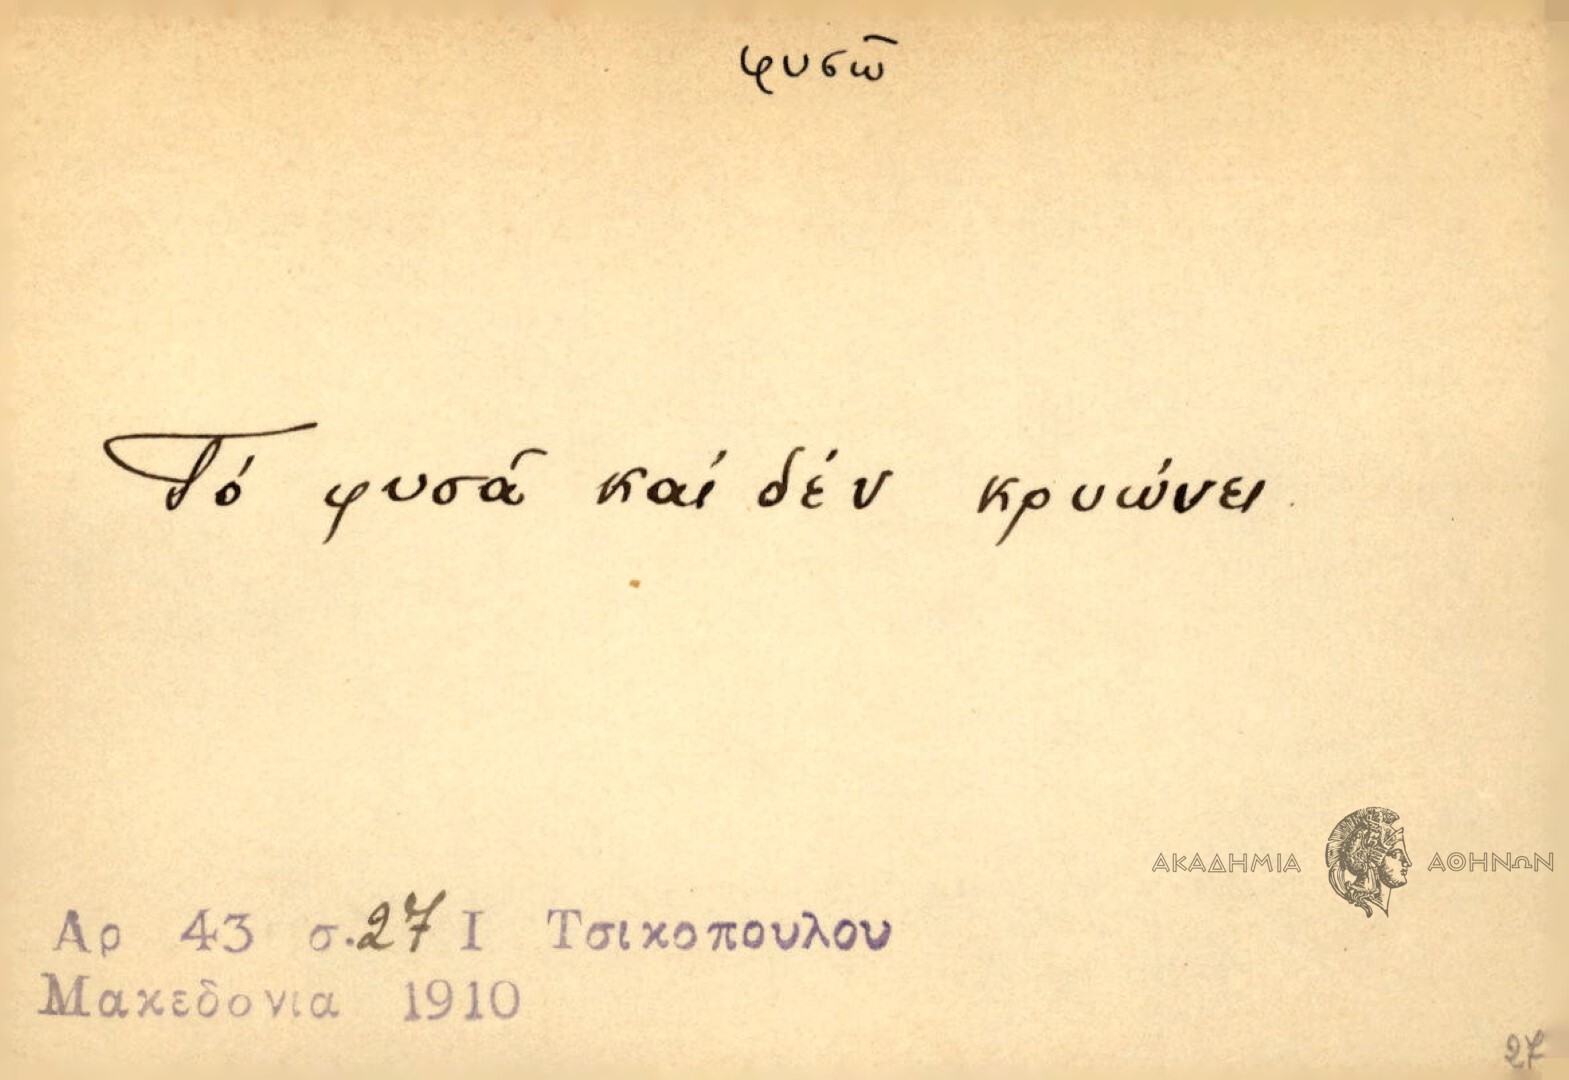 φυσῶ
Τό φυσᾶ καί δέν κρυώνει.
ΑΚΑΔΗΜΙΑ ΑΘΗΝΩΝ
Αρ 43 σ.27 Ι Τσικοπουλου
Μακεδονια 1910
27